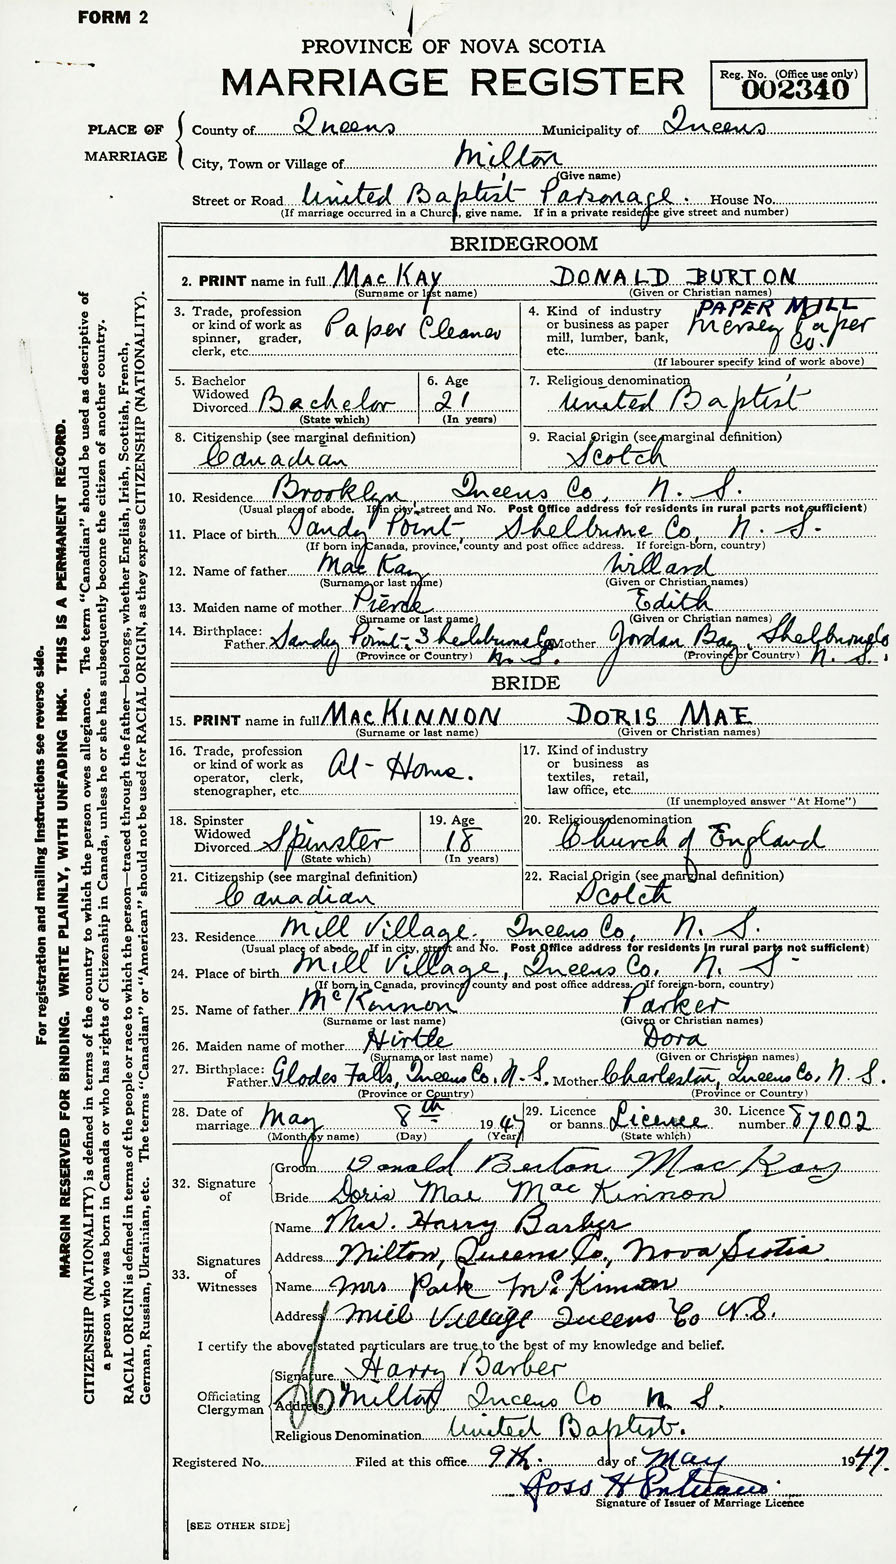 FORM 2
PROVINCE OF NOVA SCOTIA
MARRIAGE REGISTER
Reg. No. (Office use only)
002340
PLACE OF MARRIAGE
County of Queens Municipality of Queens
City, Town or Village of Milton
(Give name)
Street or Road United Baptist Parsonage. House No.
(If marriage occurred in a Church, give name. If in a private residence give street and number)
BRIDEGROOM
2. PRINT name in full MacKay DONALD BURTON
(Surname or last name) (Given or Christian names)
3. Trade, profession or kind of work as spinner, grader, clerk, etc. Paper Cleaner
4. Kind of industry or business as paper mill, lumber, bank, etc. PAPER MILL Mersey Paper Co.
(If labourer specify kind of work above)
5. Bachelor Widowed Divorced Bachelor
(State which)
6. Age 21
(In years)
7. Religious denomination United Baptist
8. Citizenship (see marginal definition) Canadian
9. Racial Origin (see marginal definition) Scotch
10. Residence Brooklyn, Queens Co, N. S.
(Usual place of abode. If in city, street and No. Post Office address for residents in rural parts not sufficient)
11. Place of birth Sandy Point, Shelburne Co, N. S.
(If born in Canada, province, county and post office address. If foreign-born, country)
12. Name of father MacKay Willard
(Surname or last name) (Given or Christian names)
13. Maiden name of mother Pierce Edith
(Surname or last name) (Given or Christian names)
14. Birthplace: Father Sandy Point, Shelburne Co N. S. Mother Jordan Bay, Shelburne Co N. S.
(Province or Country) (Province or Country)
BRIDE
15. PRINT name in full MacKINNON DORIS MAE
(Surname or last name) (Given or Christian names)
16. Trade, profession or kind of work as operator, clerk, stenographer, etc. At-Home.
17. Kind of industry or business as textiles, retail, law office, etc.
(If unemployed answer "At Home")
18. Spinster Widowed Divorced Spinster
(State which)
19. Age 18
(In years)
20. Religious denomination Church of England
21. Citizenship (see marginal definition) Canadian
22. Racial Origin (see marginal definition) Scotch
23. Residence Mill Village, Queens Co, N. S.
(Usual place of abode. If in city, street and No. Post Office address for residents in rural parts not sufficient)
24. Place of birth Mill Village, Queens Co. N. S
(If born in Canada, province, county and post office address. If foreign-born, country)
25. Name of father McKinnon Parker
(Surname or last name) (Given or Christian names)
26. Maiden name of mother Hirtle Dora
(Surname or last name) (Given or Christian names)
27. Birthplace: Father Glodes Falls, Queens Co. N. S. Mother Charleston, Queens Co, N. S.
(Province or Country) (Province or Country)
28. Date of marriage May 8th 1947
(Month by name) (Day) (Year)
29. Licence or banns Licence
(State which)
30. Licence number 87002
32. Signature of
Groom Donald Berton MacKay
Bride Doris Mae MacKinnon
33. Signatures of Witnesses
Name Mrs. Harry Barber
Address Milton, Queens Co., Nova Scotia
Name Mrs Park McKinnon
Address Mill Village Queens Co N.S.
I certify the above stated particulars are true to the best of my knowledge and belief.
Officiating Clergyman
Signature Harry Barber
Address Milton Queens Co N. S.
Religious Denomination United Baptist.
Registered No. Filed at this office 9th. day of May 1947.
Ross H
Signature of Issuer of Marriage Licence
[SEE OTHER SIDE]
For registration and mailing instructions see reverse side.
MARGIN RESERVED FOR BINDING. WRITE PLAINLY, WITH UNFADING INK. THIS IS A PERMANENT RECORD.
CITIZENSHIP (NATIONALITY) is defined in terms of the country to which the person owes allegiance. The term "Canadian" should be used as descriptive of
a person who was born in Canada or who has rights of Citizenship in Canada, unless he or she has subsequently become the citizen of another country.
RACIAL ORIGIN is defined in terms of the people or race to which the person—traced through the father—belongs, whether English, Irish, Scottish, French,
German, Russian, Ukrainian, etc. The terms "Canadian" or "American" should not be used for RACIAL ORIGIN, as they express CITIZENSHIP (NATIONALITY).